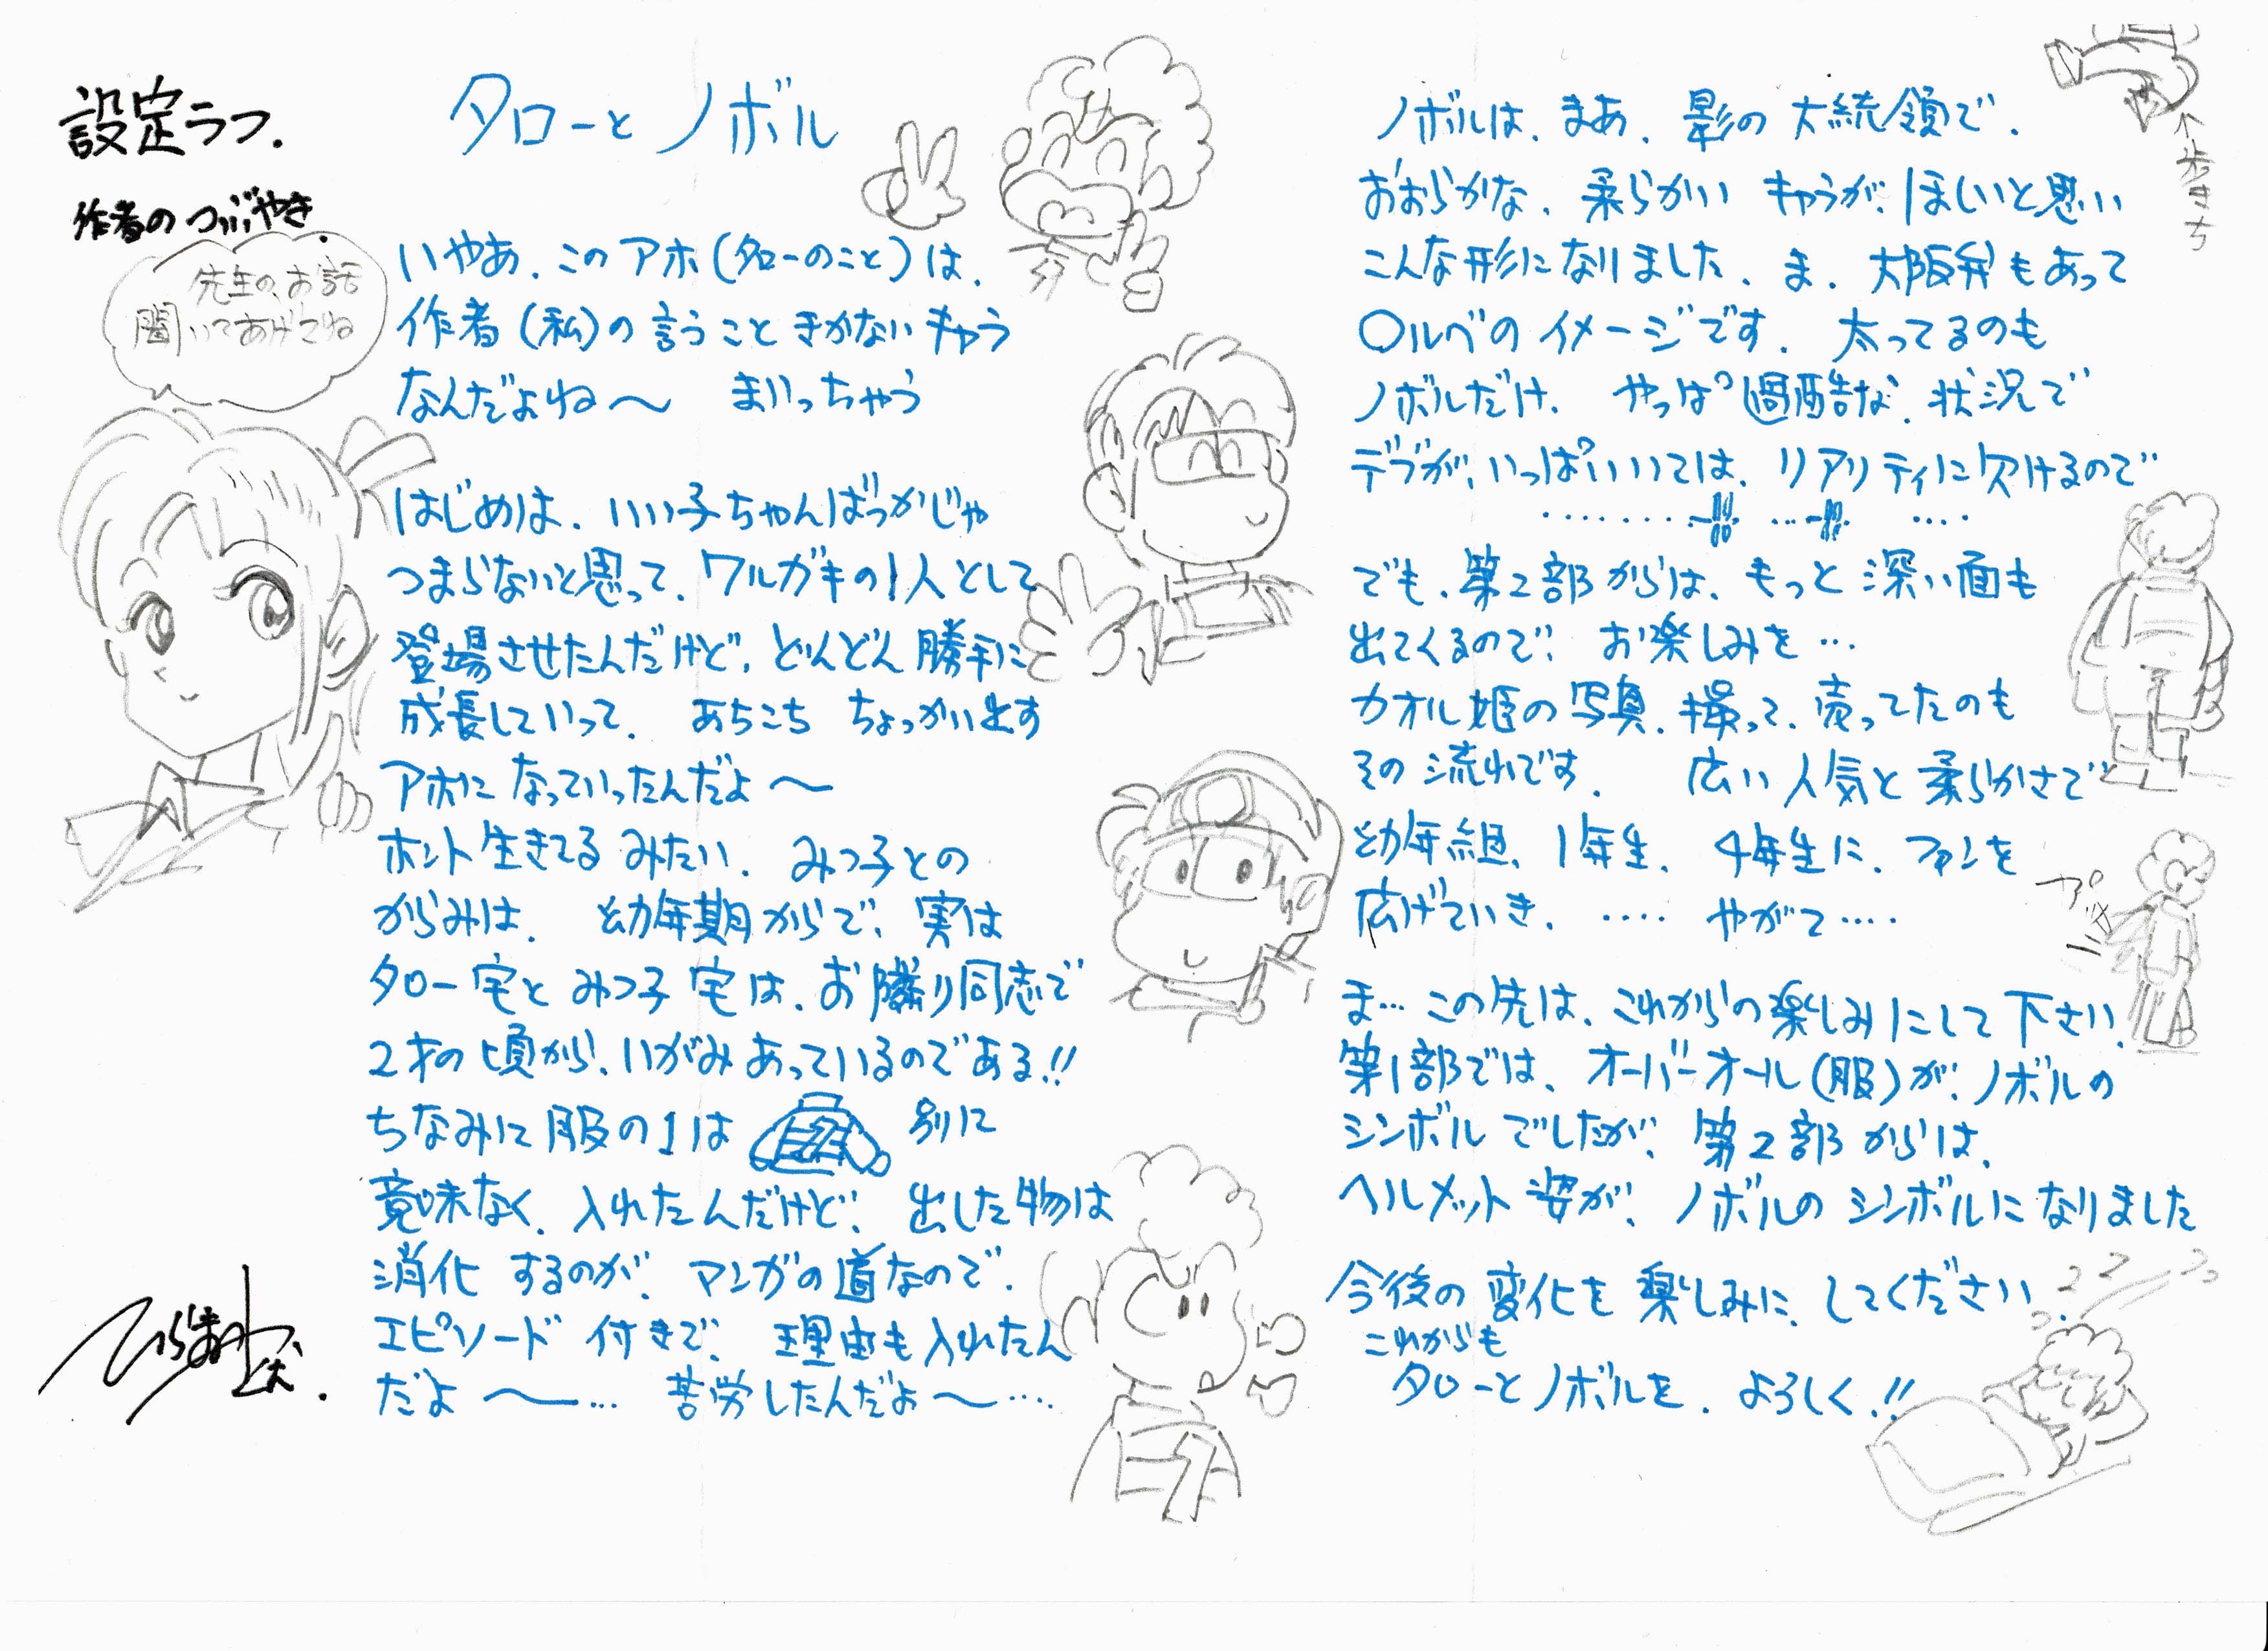 設定ラフ.
作者のつぶやき.
先生の、お話
聞いてあげてね
タローとノボル
いやあ、このアホ(タローのこと)は、
作者(私)の言うこときかないキャラ
なんだよね〜 まいっちゃう
はじめは、いい子ちゃんばっかじゃ
つまらないと思って、ワルガキの1人として
登場させたんだけど、どんどん勝手に
成長していって、あちこちちょっかい出す
アホになっていったんだよ〜
ホント生きてるみたい、みつ子との
からみは、幼年期からで、実は
タロー宅とみつ子宅は、お隣り同志で
2才の頃から、いがみあっているのである!!
ちなみに服の1は 別に
意味なく、入れたんだけど、出した物は
消化するのが、マンガの道なので、
エピソード付きで、理由も入れたん
だよ〜… 苦労したんだよ〜‥‥
ノボルは、まあ、影の大統領で、
おおらかな、柔らかいキャラが、ほしいと思い
こんな形になりました、ま、大阪弁もあって
〇ルベのイメージです、太ってるのも
ノボルだけ、やっぱ過酷な、状況で
デブが、いっぱいいては、リアリティに欠けるので
‥‥‥‥!! ‥‥!! ‥‥
でも、第2部からは、もっと深い面も
出てくるので、お楽しみを…
カオル姫の写真、撮って、売ってたのも
その流れです、広い人気と柔らかさで
幼年組、1年生、4年生に、ファンを
広げていき、‥‥やがて‥‥
ま…この先は、これからの楽しみにして下さい、
第1部では、オーバーオール(服)が、ノボルの
シンボルでしたが、第2部からは、
ヘルメット姿が、ノボルのシンボルになりました
今後の変化を楽しみに、してください、
これからも
タローとノボルを、よろしく!!
↑歩きち